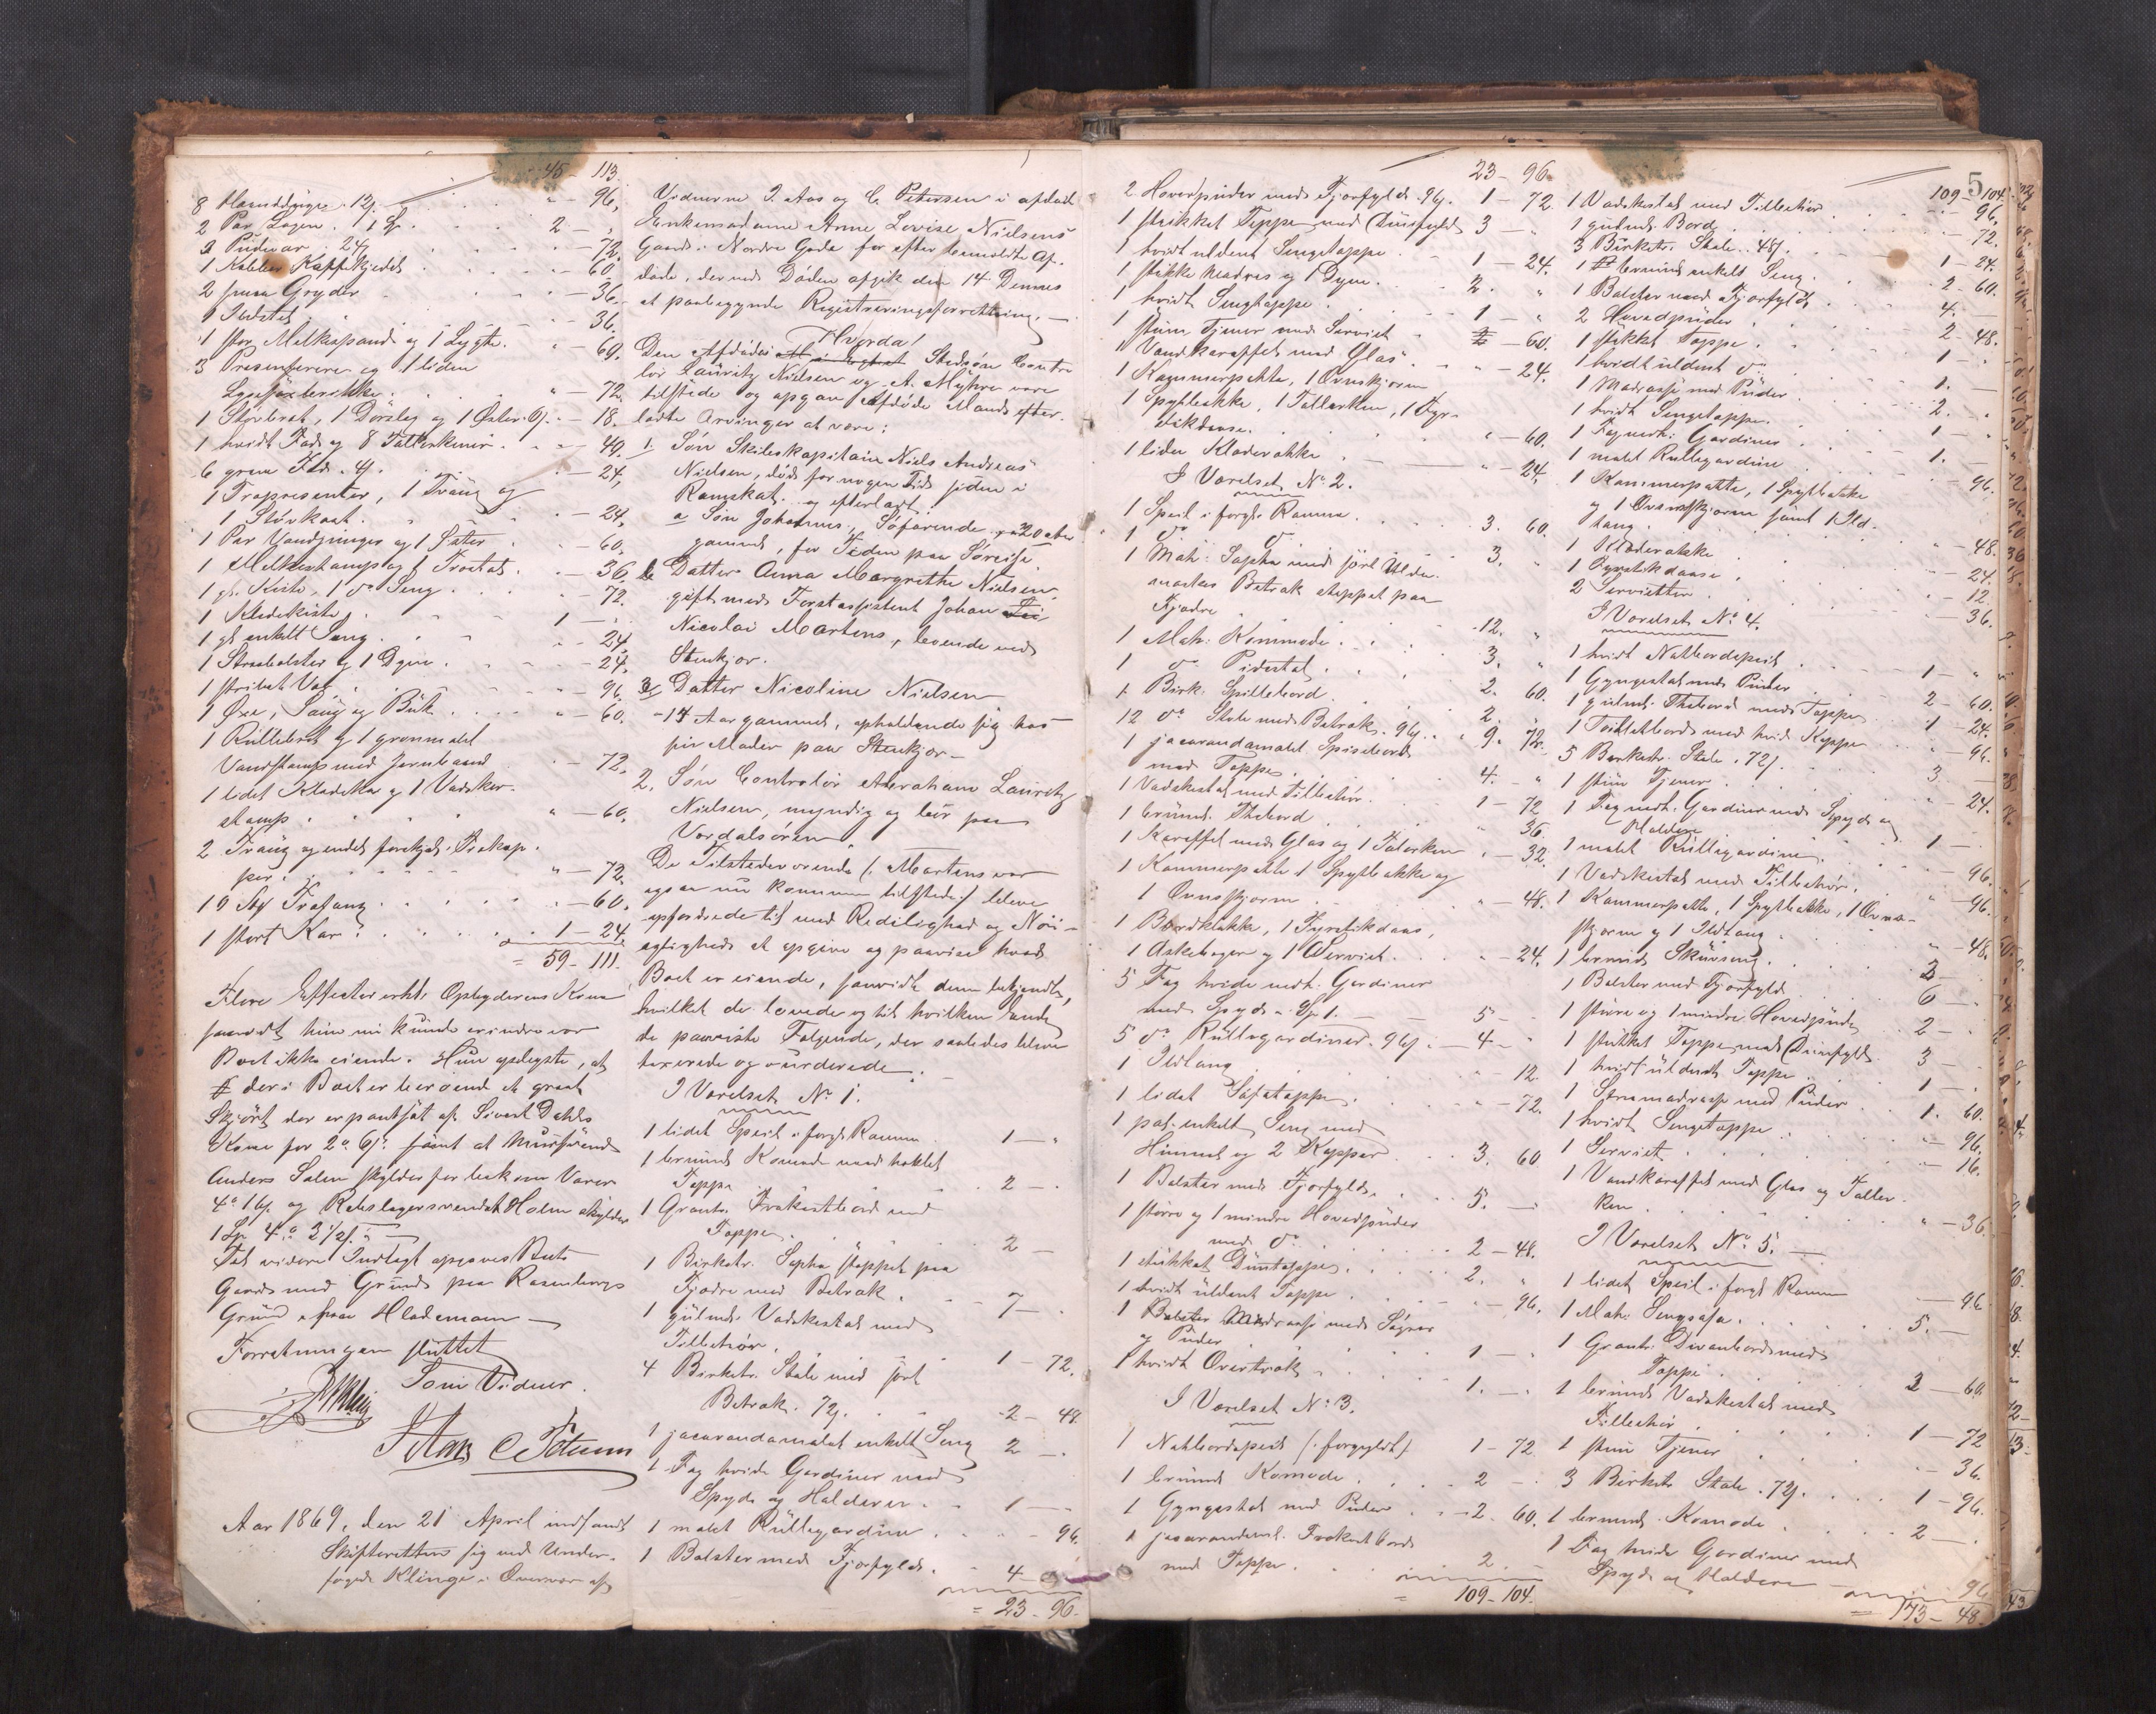 45 - 113.
8 Haanddüge. 12ſ. " - 96.
2 Par Lagen. 1 Sp. 2 - "
3 Püdevar. 24ſ - 72.
1 Kobber Kaffekjedel - 60.
2 smaa Gryder - 36.
1 Ildsted - 36.
1 stor Melkespand og 1 Lygte. - 60.
3 Presenterere og 1 liden
- 72.
1 Dørslag og 1 - 18.
1 hvidt Fad og 8 Tallerkener - 40.
6 Fade. 4ſ. - 24.
1 Træpresenter, 1 Traug og
1 - 24.
1 Par Vandspænger og 1 - 60.
1 Melkestamp og 1 - 36.
1 gl. Kiste, 1 do Seng - 72.
1 Klædekiste 1 - "
1 gl. enkelt Seng - 24.
1 Straabolster og 1 Dyne - 24.
1 - 96.
1 Øxe, Saug og Buk - 60.
1 Rüllebræt og 1 grønmalet
Vandstamp med Jernbaand - 72.
1 lidet Klædekar og 1 Vadsker-
stamp " - 60.
2 Traug og endel
" - 72.
19 Trefang - 60.
1 stort Kar 1 - 24.
= 59 - 111.
Flere Effecter erkl. Opbyderens Kone
saavidt hun nu kunde erindre var
Boet ikke eiende. Hun oplyste, at
der i Boet er beroende et graat
Skjørt der er pantsat af Sivert Dahls
Kone for 2 6ſ samt at
Anders Solem skylder for bekomne Varer
4 16ſ og Rebslagersvendet Holm skylder
1 Sp 4 3½ſ
Tat videre Indtægt opgaves Boets
Gaard med Grund paa Rosenborgs
Grund Hlademoen
Forretningen sluttet
Som Vidner.
J Aas C Petersen
Aar 1869, den 21 April indfandt
Skifteretten sig ved Under-
foged Klinge i Overvær af
Vidnerne J. Aas og C. Petersen i afdøde
Enkemadame Anne Lovise Nielsens
Gaard i Nordre Gade for efter Anmeldte Af-
døde, der ved Døden afgik den 14 Dennes
at paabegynde Registreringsforretning. -
Hvorda!
Den Afdødes Stedsøn Contro
lør Lauritz Nielsen og A. Myhre vare
tilstede og opgav Afdøde Mands efter-
ladte Arvinger at være:
1. Søn Skibskapitain Niels Andreas
Nielsen, død for nogen Tid siden i
Ramskat og efterladt:
a Søn Johannes, Søfarende, 20 aar
gammel, for Tiden paa Søreise.
b Datter Anna Margrethe Nielsen
gift med Forstassistent Johan
Nicolai Martens, boende ved
Stenkjær.
Datter Nicoline Nielsen
17 Aar gammel, opholdende sig hos
sin Moder paa Stenkjær -
2. Søn Controlør Abraham Lauritz
Nielsen, myndig og bor paa
Verdalsøren.
De Tilstedeværende (: Martens var
ogsaa nu kommen tilstede :) bleve
opfordrede til med Redelighed og Nøi-
agtighed at opgive og paavise hvad
Boet er eiende, saavidt dem bekjendt,
hvilket de lovede og til hvilken Ende
de paaviste Følgende, der saaledes bleve
taxerede og vurderede:
I Værelset No 1.
1 lidet Speil i forgl. Ramme 1 - "
1 brunmalet Komode med heklet
Teppe 2 - .
1 Grantr. Frokostbord med
Teppe 2 -
1 Birketr. Sopha stoppet paa
Fjædre med Betræk 7 - .
1 gulmalt. Vadskestol med
Tilbehør 1 - 72.
4 Birketr. Stole med sort
Betræk. 72ſ 2 - 48.
1 jacarandamalet enkelt Seng 2 - .
1 Fag hvide Gardiner med
Spyd og Holdere 1 -
1 malet Rüllegardine - 96.
1 Bolster med Fjærfyld. 4 -
= 23 - 96.
23 - 96.
2 Hovedpüder med Fjærfyld. 96ſ. 1 - 72.
1 stikket Teppe med Dünfyld 3 - "
1 hvidt uldent Sengeteppe 1 - 24.
1 stikke Madras og 1 Dyne 2 "
1 hvidt Sengteppe 1 - "
1 stum Tjener med Serviet - 60.
1 Vandkaraffel med Glas " - 24.
1 Kammerpotte, 1 Ovnskjærm
1 Spyttebakke, 1 Tallerken, 1 Fyr-
stikdaase. " - 60.
1 liden Klædesrække " - 24.
I Værelset No 2.
1 Speil i forgl. Ramme 3. 60.
1 do do 3. "
1 Mah. Sopha med sort Ulden
Betræk stoppet paa
Fjædre 12. "
1 Mah. Kommode 3. "
1 do Pidestal 2. 60.
1 Birk. Spillebord 2.
12 do Stole med Betræk. 96ſ 9. 72.
1 jacarandamalet Spisebord
med Teppe 4. "
1 Vadskestol med Tilbehør 1 - 72
1 brunmalt. Thebord " 36.
1 Karaffel med Glas og 1 Talerken " 32.
1 Kammerpotte 1 Spyttebakke og
1 Ovnsskjærm " - 48.
1 Bordklokke, 1 Fyrstikdaase,
1 Askebæger og 1 Serviet " - 24.
5 Fag hvide Gardiner
med Spyd. Sp 1. 5 -
5 do Rüllegardiner. 96ſ. 4 -
1 Ildtang " - 12.
1 lidet Sofateppe " - 72.
1 enkelt Seng med
Himmel og 2 Kapper 3. 60
1 Bolster med Fjærfyld. 5. -
1 større og 1 mindre Hovedpüder
med do 2 - 48.
1 stukket Dünteppe 2. "
1 hvidt uldent Teppe - 96.
1 Madrasse med
og Püder 1 - .
1 hvidt Overtræk 1. -
I Værelset No 3.
1 Natbordspeil (: forgyldt) 1 - 72.
1 brunmalt Komode 2
1 Gyngestol med Püder 2. 60.
1 jacarandamalt. Frokostbord
med Teppe 2
= 109 - 104.
5
109 104.
1 Vadskestol med Tilbehør - 96.
1 gulmalt Bord - 72.
3 Birketr. Stole. 48ſ. 1 - 24.
1 brunmalt enkelt Seng 2 - 60.
1 Bolster med Fjærfyld 4. -
2 Hovedpüder 2 - 48.
1 stukket Teppe 1 - .
1 hvidt uldent do 1. -
1 Madrasse med Püder 2.
1 hvidt Sengeteppe 1 -
1 Fag nedt. Gardiner 1.
1 malet Rullegardine - 96.
1 Kammerpotte, 1 Spyttebakke
og 1 Ovnsskjærm samt 1 Ild-
tang - 48.
1 Klæderække - 24.
1 Fyrstikdaase - 12
2 Servietter - 36.
I Værelset No 4.
1 hvidt Natbordspeil 1 - "
1 Gyngestol med Püder 2 - 60.
1 gulmalt Thebord med Teppe 1 - 24.
1 Toiletbord med hvid Kappe " 96.
5 Birketr. Stole. 72ſ. 3 -
1 stum Tjener " - 24.
1 Fag nedt. Gardiner med Spyd og
Holdere 1 -
1 malet Rüllegardine - 96.
1 Vadskestol med Tilbehør " - 96.
1 Kammerpotte, 1 Spyttebakke, 1 Ovns-
skjærm og 1 Ildtang " - 48.
1 brunmalt Skuvseng 2 -
1 Bolster med Fjærfyld 6 -
1 større og 1 mindre Hovedpüde 2 - .
1 stukket Teppe med Dünfyld 3 -
1 hvidt uldent Teppe 1 -
1 med Püder 1. 60.
1 hvidt Sengeteppe - 96.
1 Serviet - 16.
1 Vandkaraffel med Glas og Taller-
ken " - 36
I Værelset No 5. -
1 lidet Speil i forgl. Ramme - 96
1 Mah. Sengsofa 5. -
1 Grantr. Divanbord med
Teppe 2 - 60.
1 brunmalt Vadskestol med
Tilbehør 1 - 72
1 stum Tjener - 36.
3 Birketr. Stole. 72ſ. 1 - 96.
1 brunmalt. Komode 2 -
1 Fag hvide Gardiner med
Spyd og Holdere 96
= 173 - 48.